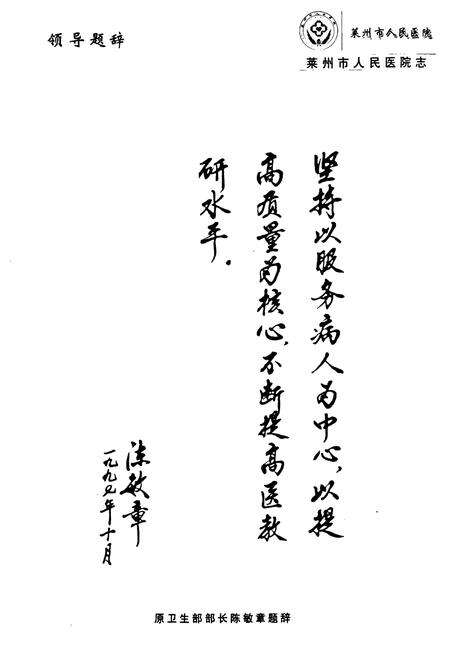 领导题辞
莱州市人民医院
莱州市人民医院志
坚持以服务病人为中心，以提
高质量为核心，不断提高医教
研水平。
陈敏章
一九九七年十月
原卫生部部长陈敏章题辞